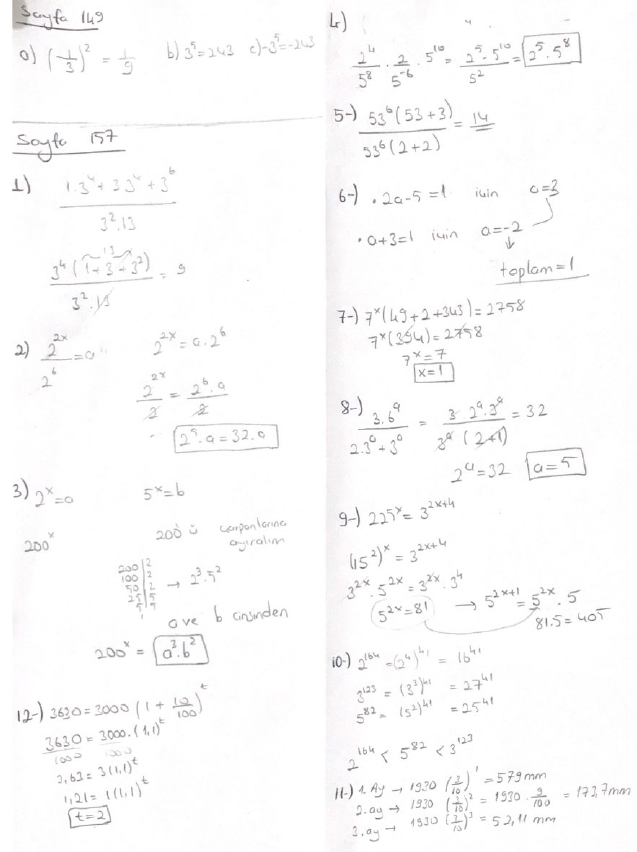 Sayfa 149
a) (1/3)² = 1/9 b) 3⁵=243 c) -3⁵=-243
Sayfa 157
1) (1.3⁴+3 3⁴+3⁶)/(3².13)
13
(3⁴(1+3+3²))/(3².13) = 9
2) 2^(2x)/2⁶ = a 2^(2x) = a.2⁶
2^(2x)/2 = (2⁶.a)/2
2⁵.a = 32.a
3) 2^x=a 5^x=b
200^x 200 ü çarpanlarına
ayıralım
200|2
100|2
50|2 → 2³.5²
25|5
5|5
1
a ve b cinsinden
200^x = a³.b²
12-) 3630=3000(1+10/100)^t
3630/1000 = 3000/1000.(1,1)^t
3,63=3(1,1)^t
1,21=1(1,1)^t
t=2
4)
2⁴/5⁸ . 2/5⁻⁶ . 5¹⁰ = (2⁵.5¹⁰)/5² = 2⁵.5⁸
5-) (53⁶(53+3))/(53⁶(2+2)) = 14
6-) • 2a-5=1 için a=3
• a+3=1 için a=-2
toplam=1
7-) 7^x(49+2+343)=2758
7^x(394)=2758
7^x=7
x=1
8-) (3.6^a)/(2.3^a+3^a) = (3 2^a.3^a)/(3^a(2+1)) = 32
2^a=32 a=5
9-) 225^x=3^(2x+4)
(15²)^x=3^(2x+4)
3^(2x).5^(2x)=3^(2x).3⁴
5^(2x)=81 → 5^(2x+1)=5^(2x).5
81.5=405
10-) 2¹⁶⁴=(2⁴)⁴¹ = 16⁴¹
3¹²³ = (3³)⁴¹ = 27⁴¹
5⁸² = (5²)⁴¹ = 25⁴¹
2¹⁶⁴ < 5⁸² < 3¹²³
11-) 1. Ay → 1930 (3/10)¹ = 579 mm
2. ay → 1930 (3/10)² = 1930 . 9/100 = 173,7 mm
3. ay → 1930 (3/10)³ = 52,11 mm